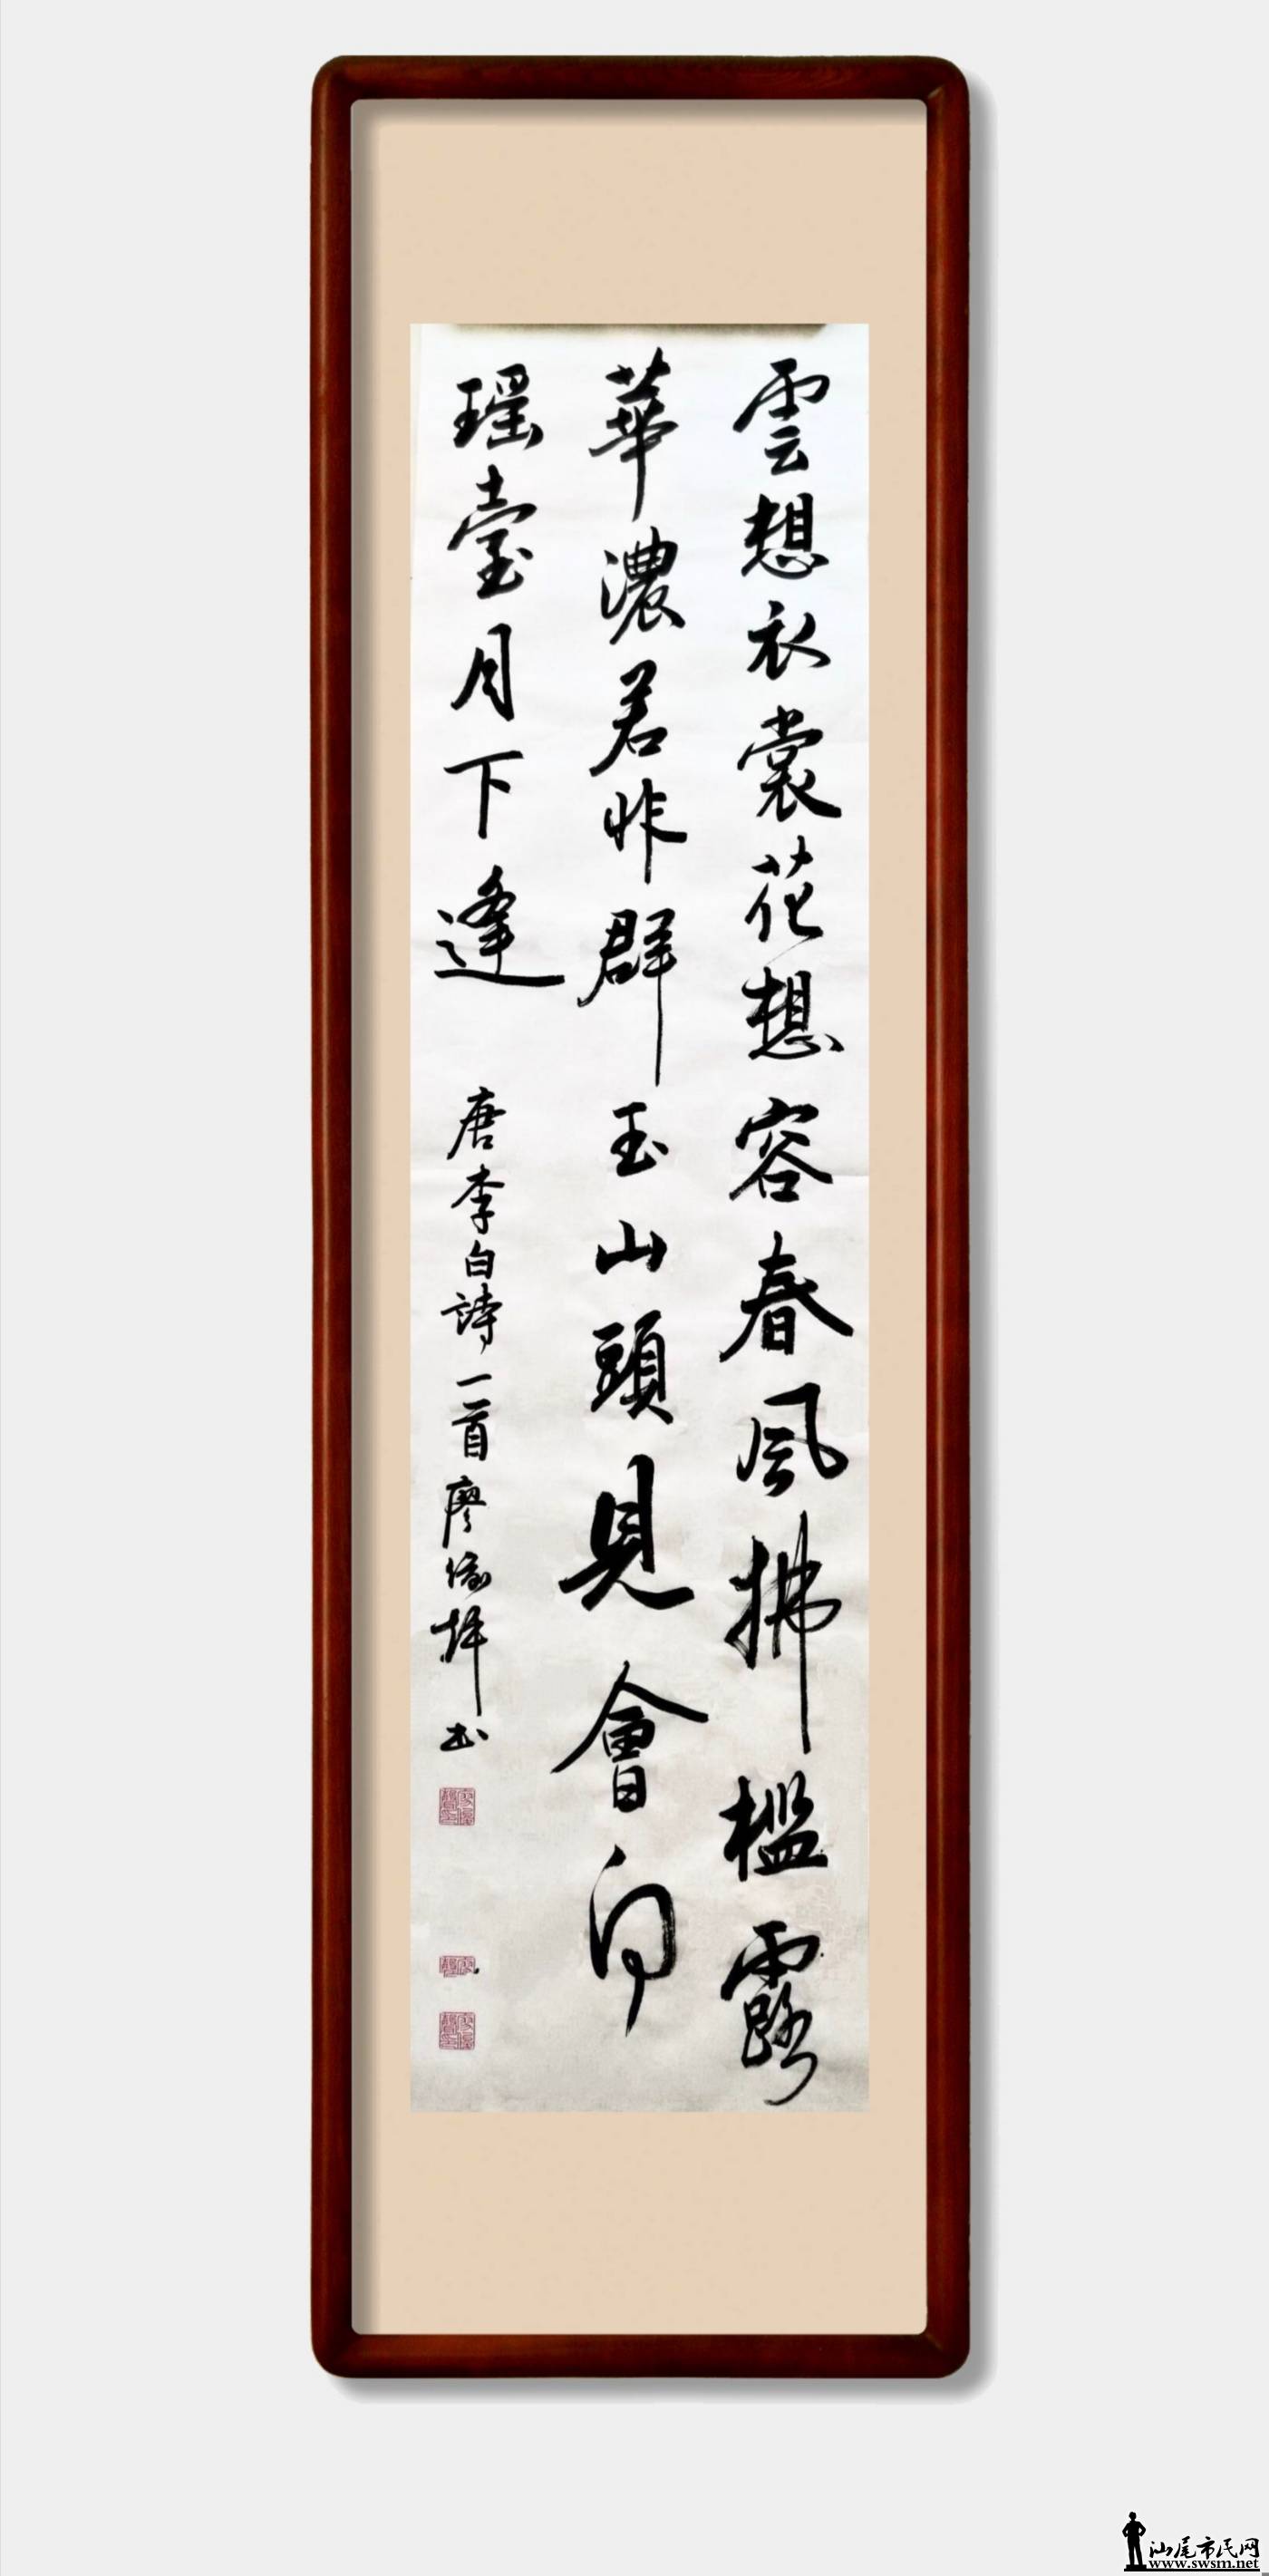 雲想衣裳花想容春風拂檻露
華濃若非群玉山頭見會向
瑤臺月下逢
唐李白詩一首廖瑜坪书
汕尾市民网
www.swsm.net